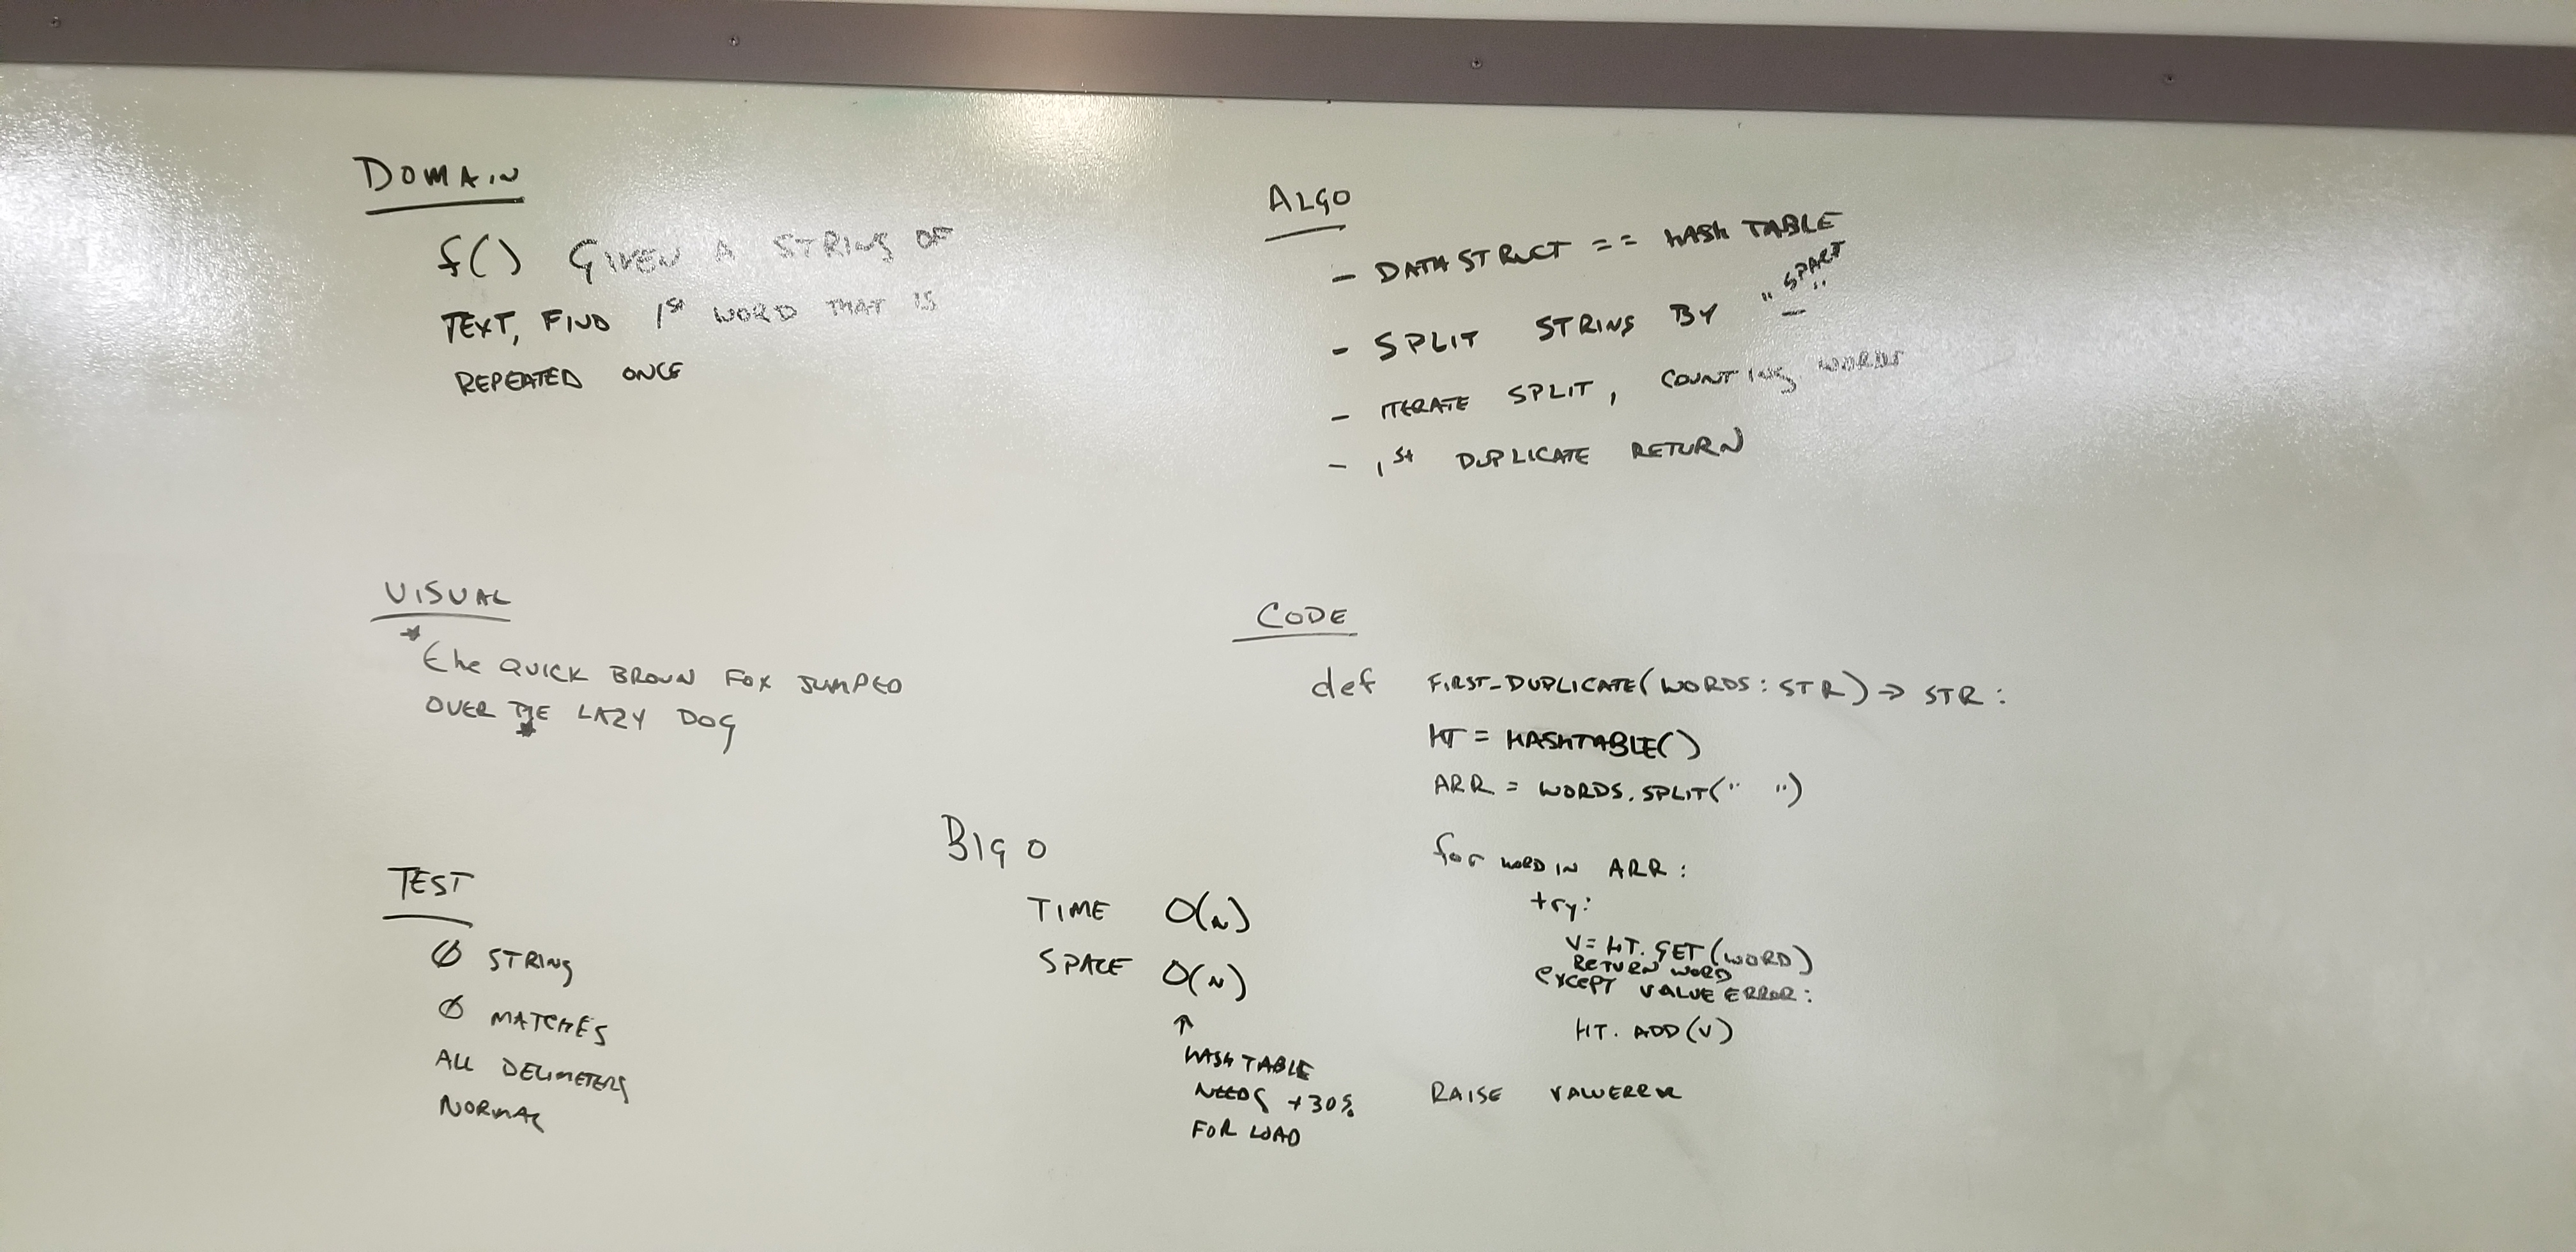 DOMAIN
f() GIVEN A STRING OF
TEXT, FIND 1st WORD THAT IS
REPEATED ONCE
ALGO
- DATA STRUCT == HASH TABLE
- SPLIT STRING BY " SPACE "
- ITERATE SPLIT, COUNTING WORDS
- 1st DUPLICATE RETURN
VISUAL
the QUICK BROWN FOX JUMPED
OVER THE LAZY DOG
TEST
Ø STRING
Ø MATCHES
ALL DELIMETERS
NORMAL
BIG O
TIME O(N)
SPACE O(N)
↑
HASH TABLE
NEEDS +30%
FOR LOAD
CODE
def FIRST_DUPLICATE(WORDS: STR) → STR:
HT = HASHTABLE()
ARR = WORDS.SPLIT(" ")
for WORD IN ARR:
try:
V = HT.GET(WORD)
RETURN WORD
EXCEPT VALUE ERROR:
HT.ADD(V)
RAISE